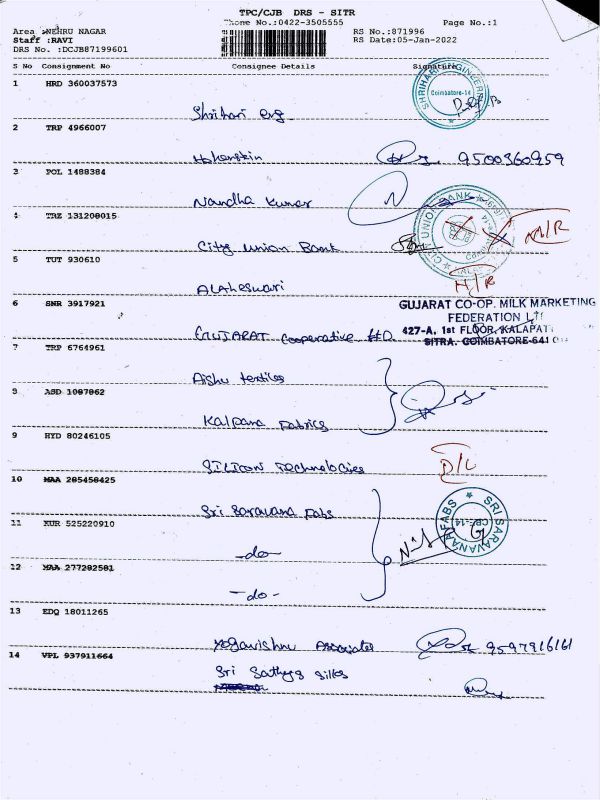 TPC/CJB DRS - SITR
Phone No.:0422-3505555
Page No.:1
Area :NEHRU NAGAR
RS No.:871996
Staff :RAVI
RS Date:05-Jan-2022
DRS No. :DCJB87199601
S No Consignment No Consignee Details Signature
1 HRD 360037573
Shrihari eng
SHRIHARI ENGINEERING
Coimbatore-14
2 TRP 4966007
9500360959
3 POL 1488384
Nandha Kumar
4 TRZ 131200015
City union Bank
CITY UNION BANK
N/R
5 TUT 930610
N/R
6 SNR 3917921
GUJARAT cooperative
GUJARAT CO-OP. MILK MARKETING
FEDERATION
427-A, 1st FLOOR, KALAPAT
SITRA, COIMBATORE-641
7 TRP 6764961
Aishu textiles
8 ASD 1087862
Kalpana Fabrics
9 HYD 80246105
SILICON Technologies
D/L
10 MAA 285458425
Sri Saravana Fabs
SRI SARAVANAA FABS
CBE-14
11 KUR 525220910
-do-
12 MAA 277282581
-do-
13 EDQ 18011265
Yogavishnu Associates
9597916161
14 VPL 937911664
Sri Sathya Silks